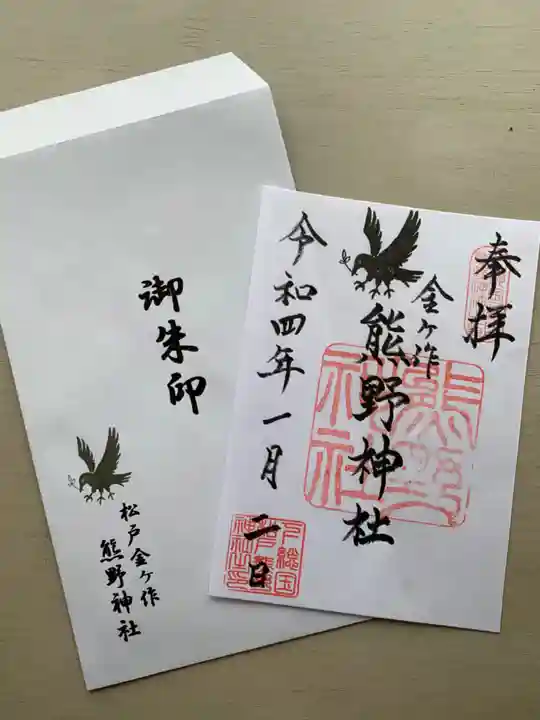 御朱印
松戸金ヶ作
熊野神社
奉拝
金ヶ作
熊野神社
令和四年一月二日
熊野
神社
下総国